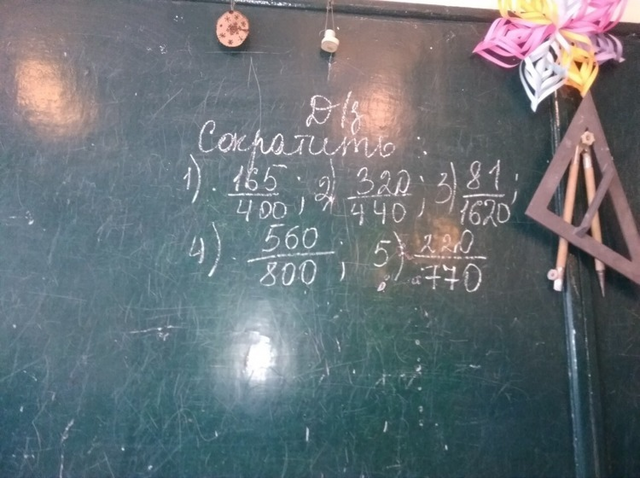 Д/з
Сократить:
1) 165/400; 2) 320/440; 3) 81/1620;
4) 560/800; 5) 220/770